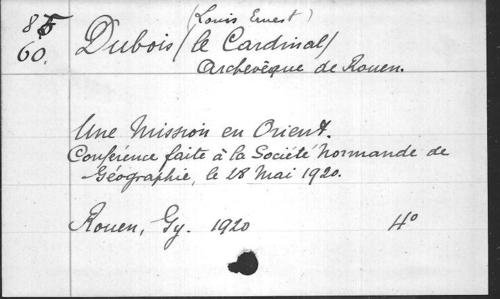 (Louis Ernest)
Dubois (le Cardinal)
60.
Archevêque de Rouen.
Une Mission en Orient.
Conférence faite à la Société Normande de
Géographie, le 28 Mai 1920.
Rouen, Gy. 1920 4°